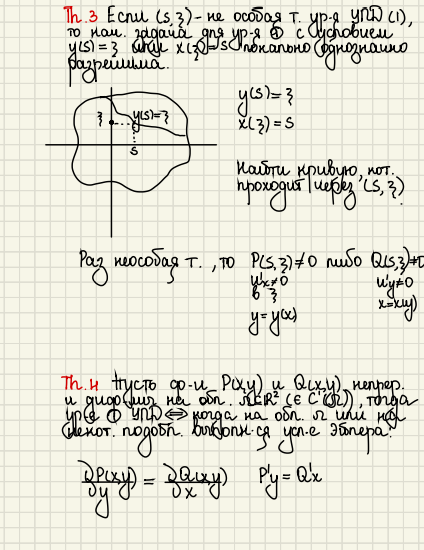 Th.3 Если (s,ξ) - не особая т. ур-я УПД (1),
то нач. задача для ур-я ① с условием
y(s)=ξ или x(ξ)=s локально однозначно
разрешима.
y(s)=ξ
x(ξ)=s
ξ y(s)=ξ
s
Найти кривую, кот.
проходит через (s,ξ).
Раз неособая т., то P(s,ξ)≠0 либо Q(s,ξ)≠0
u'x≠0 u'y≠0
в ξ x=x(y)
y=y(x)
Th.4 Пусть ф-и P(x,y) и Q(x,y) непрер.
и дифф на обл. Ω⊂R² (∈ C'(Ω)), тогда
ур-е ① УПД ⟺ когда на обл. Ω или на
некот. подобл. выполн-ся усл-е Эйлера:
∂P(x,y)/∂y = ∂Q(x,y)/∂x P'y = Q'x